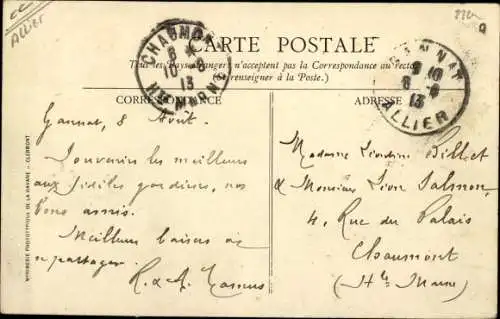 Allier
CARTE POSTALE
Tous les Pays étrangers n'acceptent pas la Correspondance au recto
(Se renseigner à la Poste.)
CORRESPONDANCE
ADRESSE
CHAUMONT
10 - 8
13
HTE MARNE
GANNAT
8 - 8
13
ALLIER
Gannat, 8 Août.
Souvenirs les meilleurs
aux fidèles gardiens, nos
bons amis.
Meilleurs baisers à
partager.
R. & A.
Madame Léontine Billiet
& Monsieur Léon Salmon,
4, Rue du Palais
Chaumont
(Hte Marne)